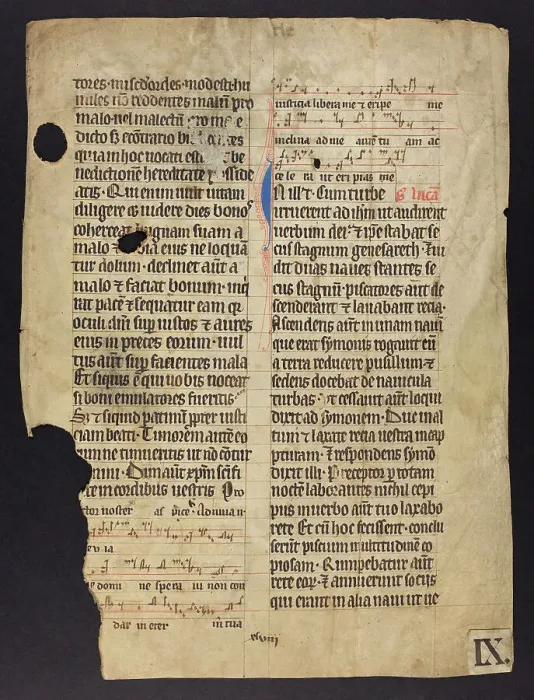 tores misericordes modesti hu
miles nō reddentes malū pro
malo nel malectū pro m e
dicto s; ecōtrario bn
quia in hoc uocati estis be
nedictionē hereditate p sside
atis. Qui enim uult uitam
diligere & uidere dies bonos
coherceat linguam suam a
malo & labia eius ne loquān
tur dolum. declinet aūt a
malo & faciat bonum. inq
rat pacē & sequatur eam qr
oculi dn̄i sup iustos & aures
eius in preces eorum. uul
tus aūt sup facientes mala
Et siquis ē qui uobis noceat
si boni emulatores fueritis
S; & siquid patimī ꝓpter iusti
ciam beati. Timorem autē eo
rum ne timueritis ut nō cōtur
bemini. Dn̄m aūt xp̄m scīfi
cate in cordibus uestris
ctor noster as pice. Ad uiua n
e u ia
e domi ne spera ui non con
dar in eter in tua
xlviii
iusticia libera me & eripe me
inclina ad me aurē tu am ac
ce le ra ut eri pias me
In ill' t'. Cum turbe s lucā
irruerent ad ih̄m ut audirent
uerbum dei. & ip̄e stabat se
cus stagnum genesareth. & ui
dit duas naues stantes se
cus stagnū. piscatores aūt de
scenderant & lauabant recia.
Ascendens aūt in unam nauī
que erat symonis rogauit eū
a terra reducere pusillum. &
sedens docebat de nauicula
turbas. Ut cessauit aūt loqui
dixit ad symonem. Duc in al
tum & laxate recia uestra in cap
pturam. & respondens symō
dixit illi. Preceptor p totam
noctē laborantes nichil cepi
mus in uerbo aūt tuo laxabo
rete Et cū hoc fecissent. conclu
serūt piscium multitudinē co
piosam. Rumpebatur aūt
rete eoꝝ. & annuerunt sociis
qui erant in alia naui ut ue
IX.